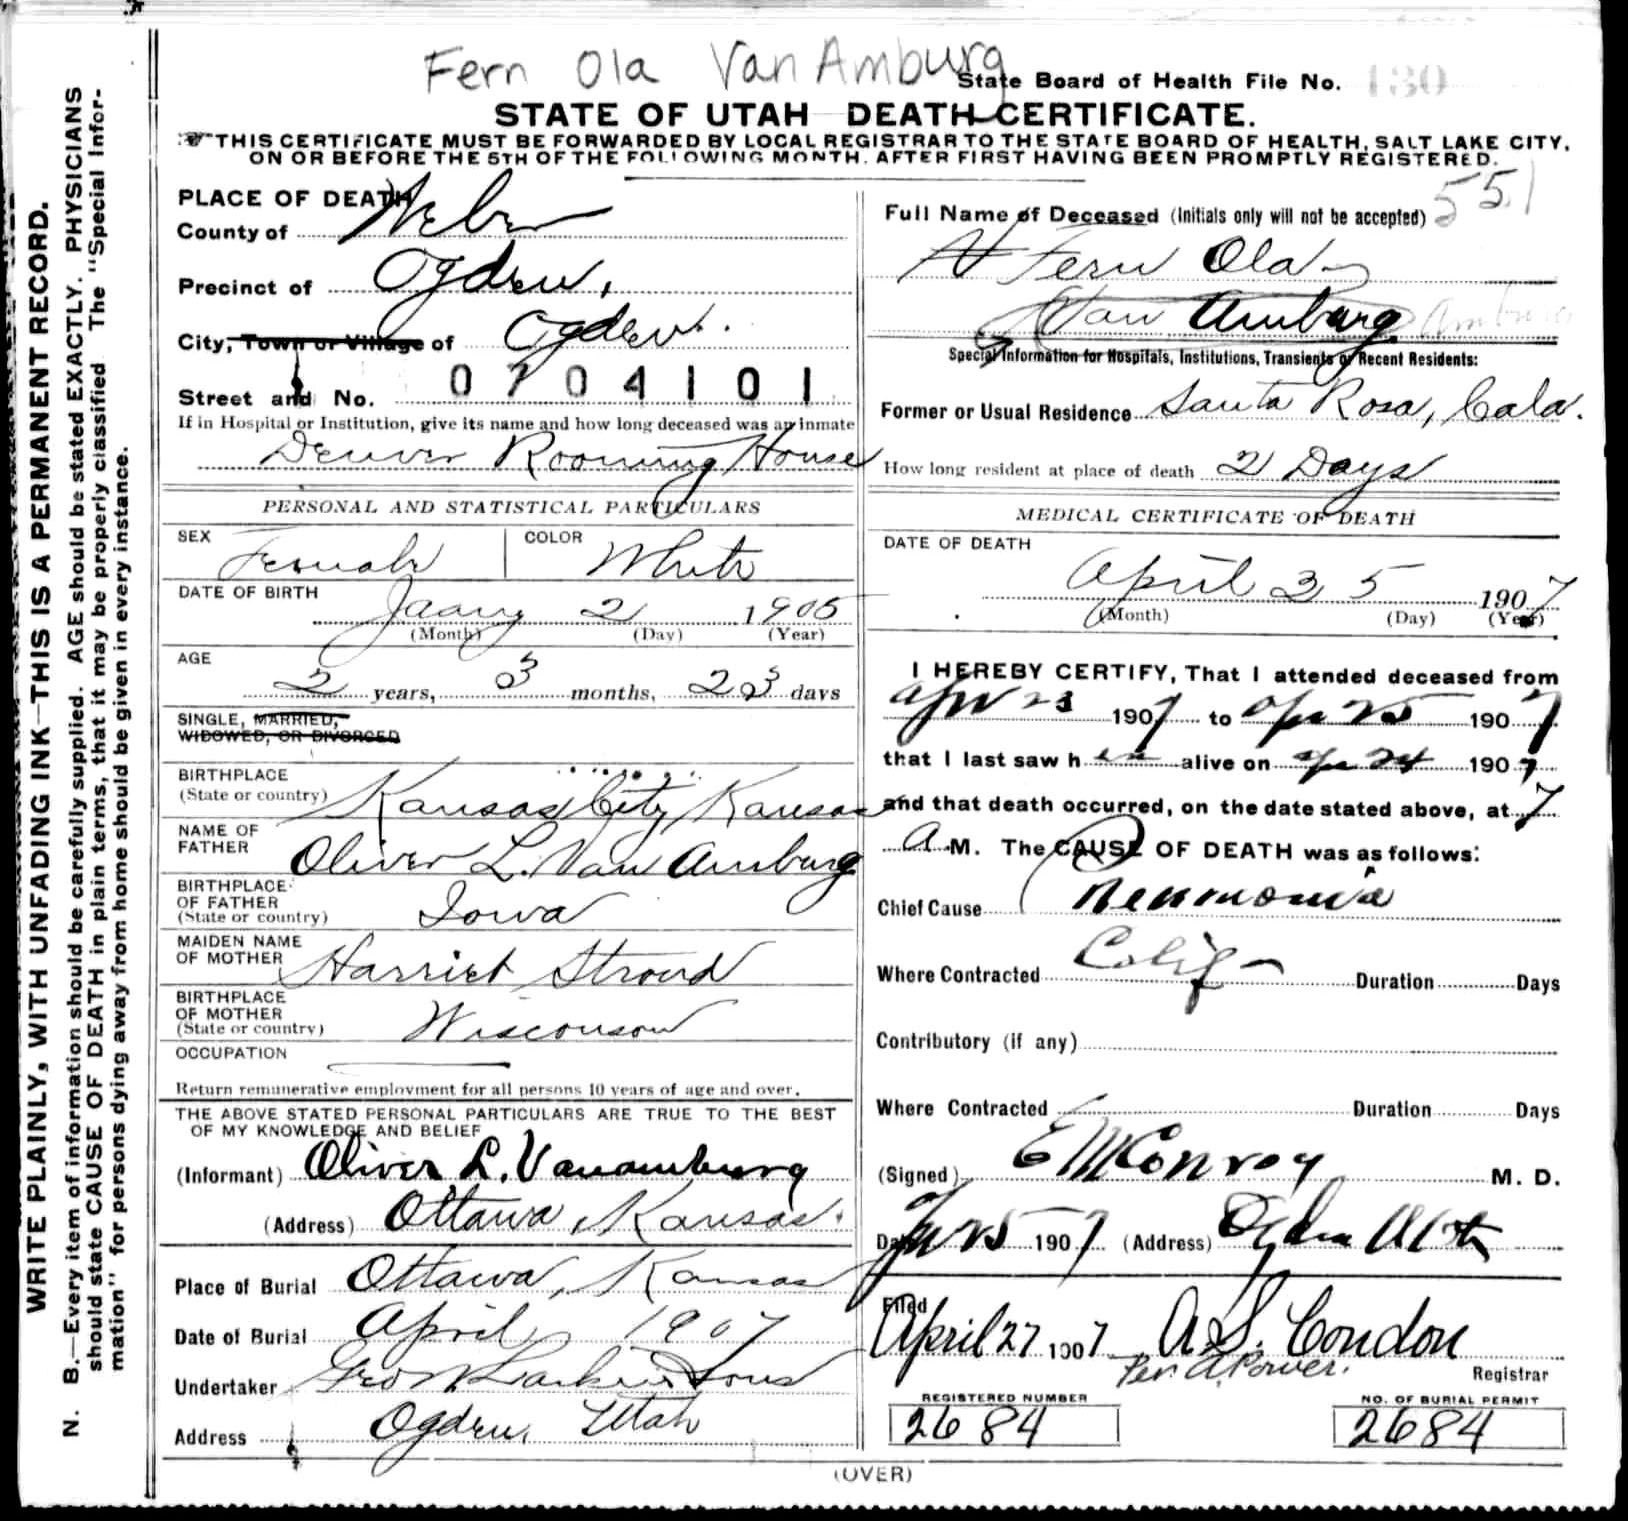 Fern Ola Van Amburg
State Board of Health File No. 130
STATE OF UTAH DEATH CERTIFICATE.
THIS CERTIFICATE MUST BE FORWARDED BY LOCAL REGISTRAR TO THE STATE BOARD OF HEALTH, SALT LAKE CITY,
ON OR BEFORE THE 5TH OF THE FOLLOWING MONTH, AFTER FIRST HAVING BEEN PROMPTLY REGISTERED.
WRITE PLAINLY, WITH UNFADING INK—THIS IS A PERMANENT RECORD.
N. B.—Every item of information should be carefully supplied. AGE should be stated EXACTLY. PHYSICIANS
should state CAUSE OF DEATH in plain terms, that it may be properly classified The "Special Infor-
mation" for persons dying away from home should be given in every instance.
PLACE OF DEATH
County of Weber
Precinct of Ogden.
City, Town or Village of Ogden.
Street and No. 0704101
If in Hospital or Institution, give its name and how long deceased was an inmate
Denver Rooming House
PERSONAL AND STATISTICAL PARTICULARS
SEX Female COLOR White
DATE OF BIRTH
Jaany 2 1905
(Month) (Day) (Year)
AGE
2 years, 3 months, 23 days
SINGLE, MARRIED,
WIDOWED, OR DIVORCED
BIRTHPLACE
(State or country) Kansas City, Kansas
NAME OF
FATHER Oliver L. Van Amburg
BIRTHPLACE
OF FATHER
(State or country) Iowa
MAIDEN NAME
OF MOTHER Harriet Stroud
BIRTHPLACE
OF MOTHER
(State or country) Wisconson
OCCUPATION
Return remunerative employment for all persons 10 years of age and over.
THE ABOVE STATED PERSONAL PARTICULARS ARE TRUE TO THE BEST
OF MY KNOWLEDGE AND BELIEF
(Informant) Oliver L. Vanamburg
(Address) Ottawa, Kansas.
Place of Burial Ottawa, Kansas
Date of Burial April 1907
Undertaker Geo Sons
Address Ogden, Utah
551
Full Name of Deceased (Initials only will not be accepted)
Fern Ola
Van Amburg Amburg
Special Information for Hospitals, Institutions, Transients or Recent Residents:
Former or Usual Residence Santa Rosa, Cala.
How long resident at place of death 2 Days
MEDICAL CERTIFICATE OF DEATH
DATE OF DEATH
April 25 1907
(Month) (Day) (Year)
I HEREBY CERTIFY, That I attended deceased from
Apr 23 1907 to Apr 25 1907
that I last saw h alive on Apr 24 1907
and that death occurred, on the date stated above, at 7
A M. The CAUSE OF DEATH was as follows:
Chief Cause Pneumonia
Where Contracted Calif Duration Days
Contributory (if any)
Where Contracted Duration Days
(Signed) E M Conroy M. D.
Date Apr 25 1907 (Address) Ogden Utah
Filed
April 27 1907 A. S. Condon
Per. A. Power. Registrar
REGISTERED NUMBER NO. OF BURIAL PERMIT
2684 2684
(OVER)